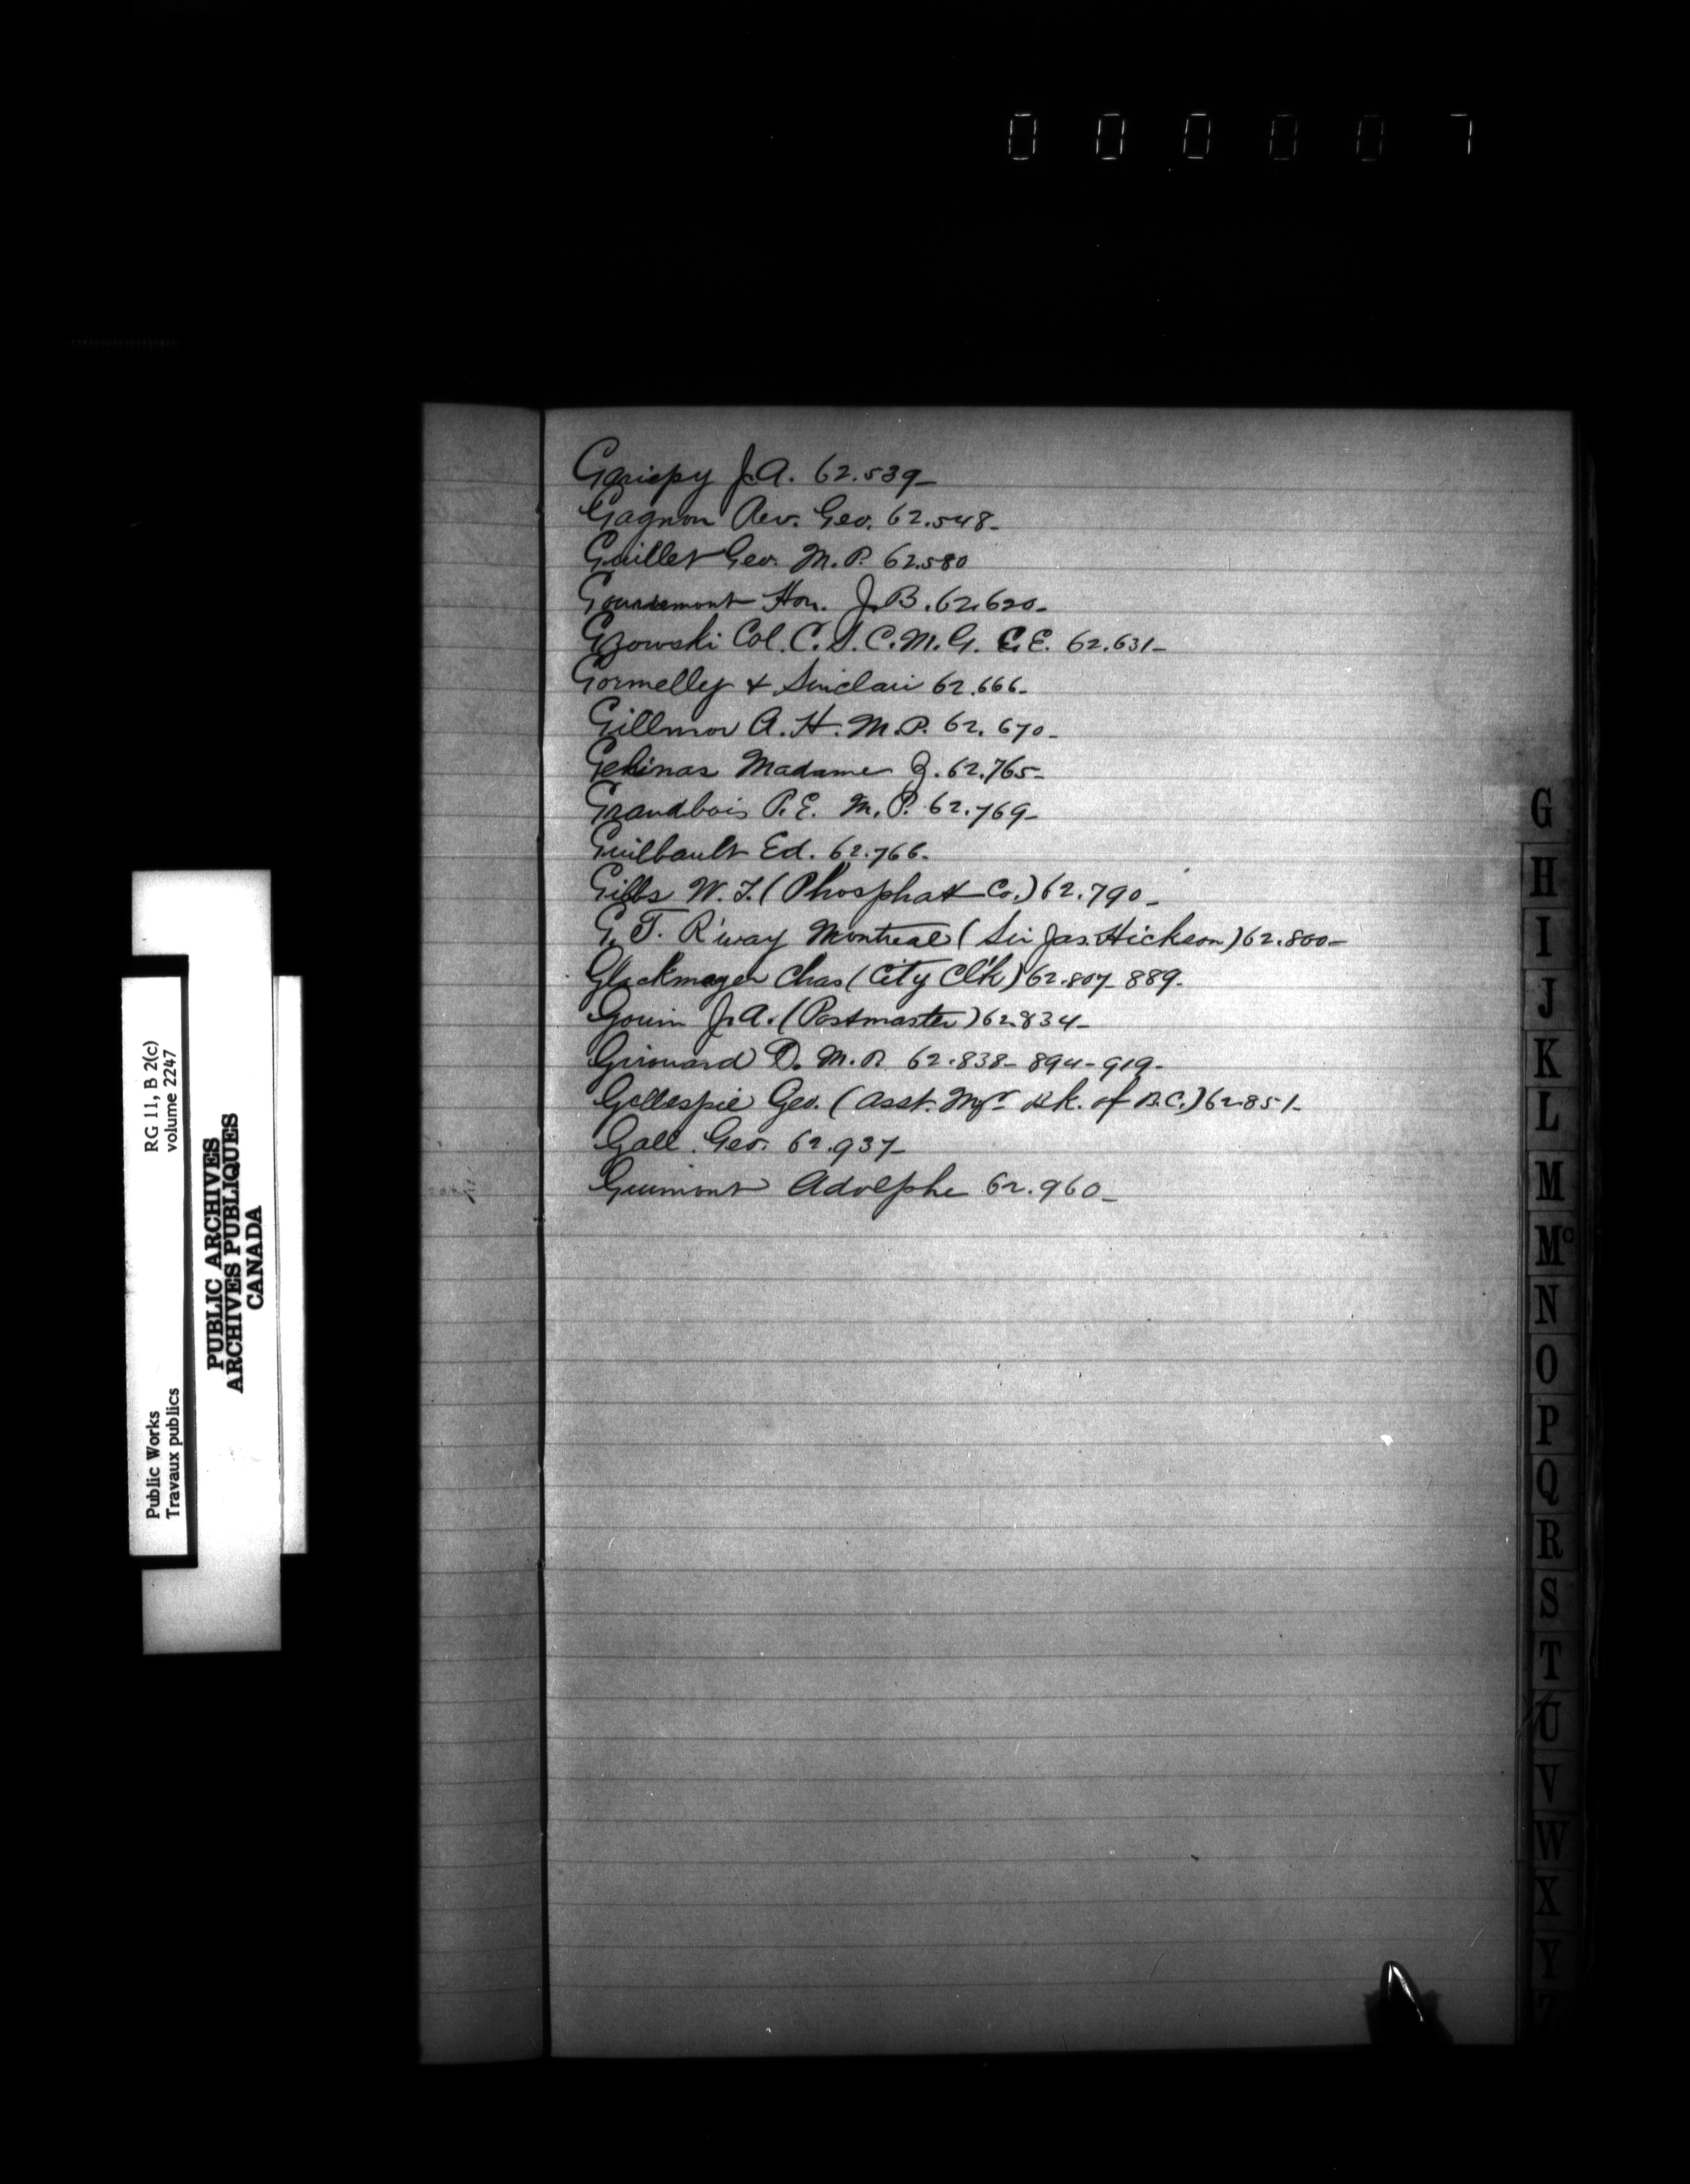 000007
Gariepy J.A. 62.539-
Gagnon Rev. Geo. 62.548-
Guillet Geo. M.P. 62.580
Hon. J.B. 62.620-
Gzowski Col. C.S. C.M.G. C.E. 62.631-
Gormelly & Sinclair 62.666-
Gillmor A.H. M.P. 62.670-
Gelinas Madame Z. 62.765-
Grandbois P.E. M.P. 62.769-
Guilbault Ed. 62.766-
Gibbs W.T. (Phosphat Co.) 62.790-
G.T. R'way Montreal (Sir Jas. Hickson) 62.800-
Glackmeyer Chas (City Cl'k) 62.807-889-
Gouin J.A. (Postmaster) 62.834-
Girouard D. M.P. 62.838-894-919-
Gillespie Geo. (Asst. Mgr. Bk. of B.C.) 62.851-
Gall Geo. 62.937-
Guimont Adolphe 62.960-
G
H
I
J
K
L
M
Mc
N
O
P
Q
R
S
T
U
V
W
X
Y
Z
RG 11, B 2(c)
volume 2247
Public Works
Travaux publics
PUBLIC ARCHIVES
ARCHIVES PUBLIQUES
CANADA